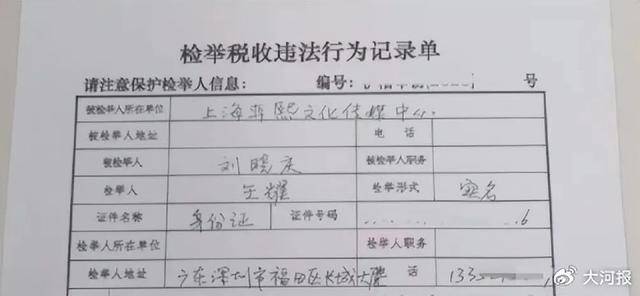 检举税收违法行为记录单
请注意保护检举人信息: 编号: 号
被检举人所在单位 上海 熙文化传媒中心
被检举人地址 电话
被检举人 刘晓庆 被检举人职务
检举人 王耀 检举形式 实名
证件名称 身份证 证件号码 6
检举人所在单位 检举人职务
检举人地址 广东深圳市福田区长城大厦 话 133
大河报